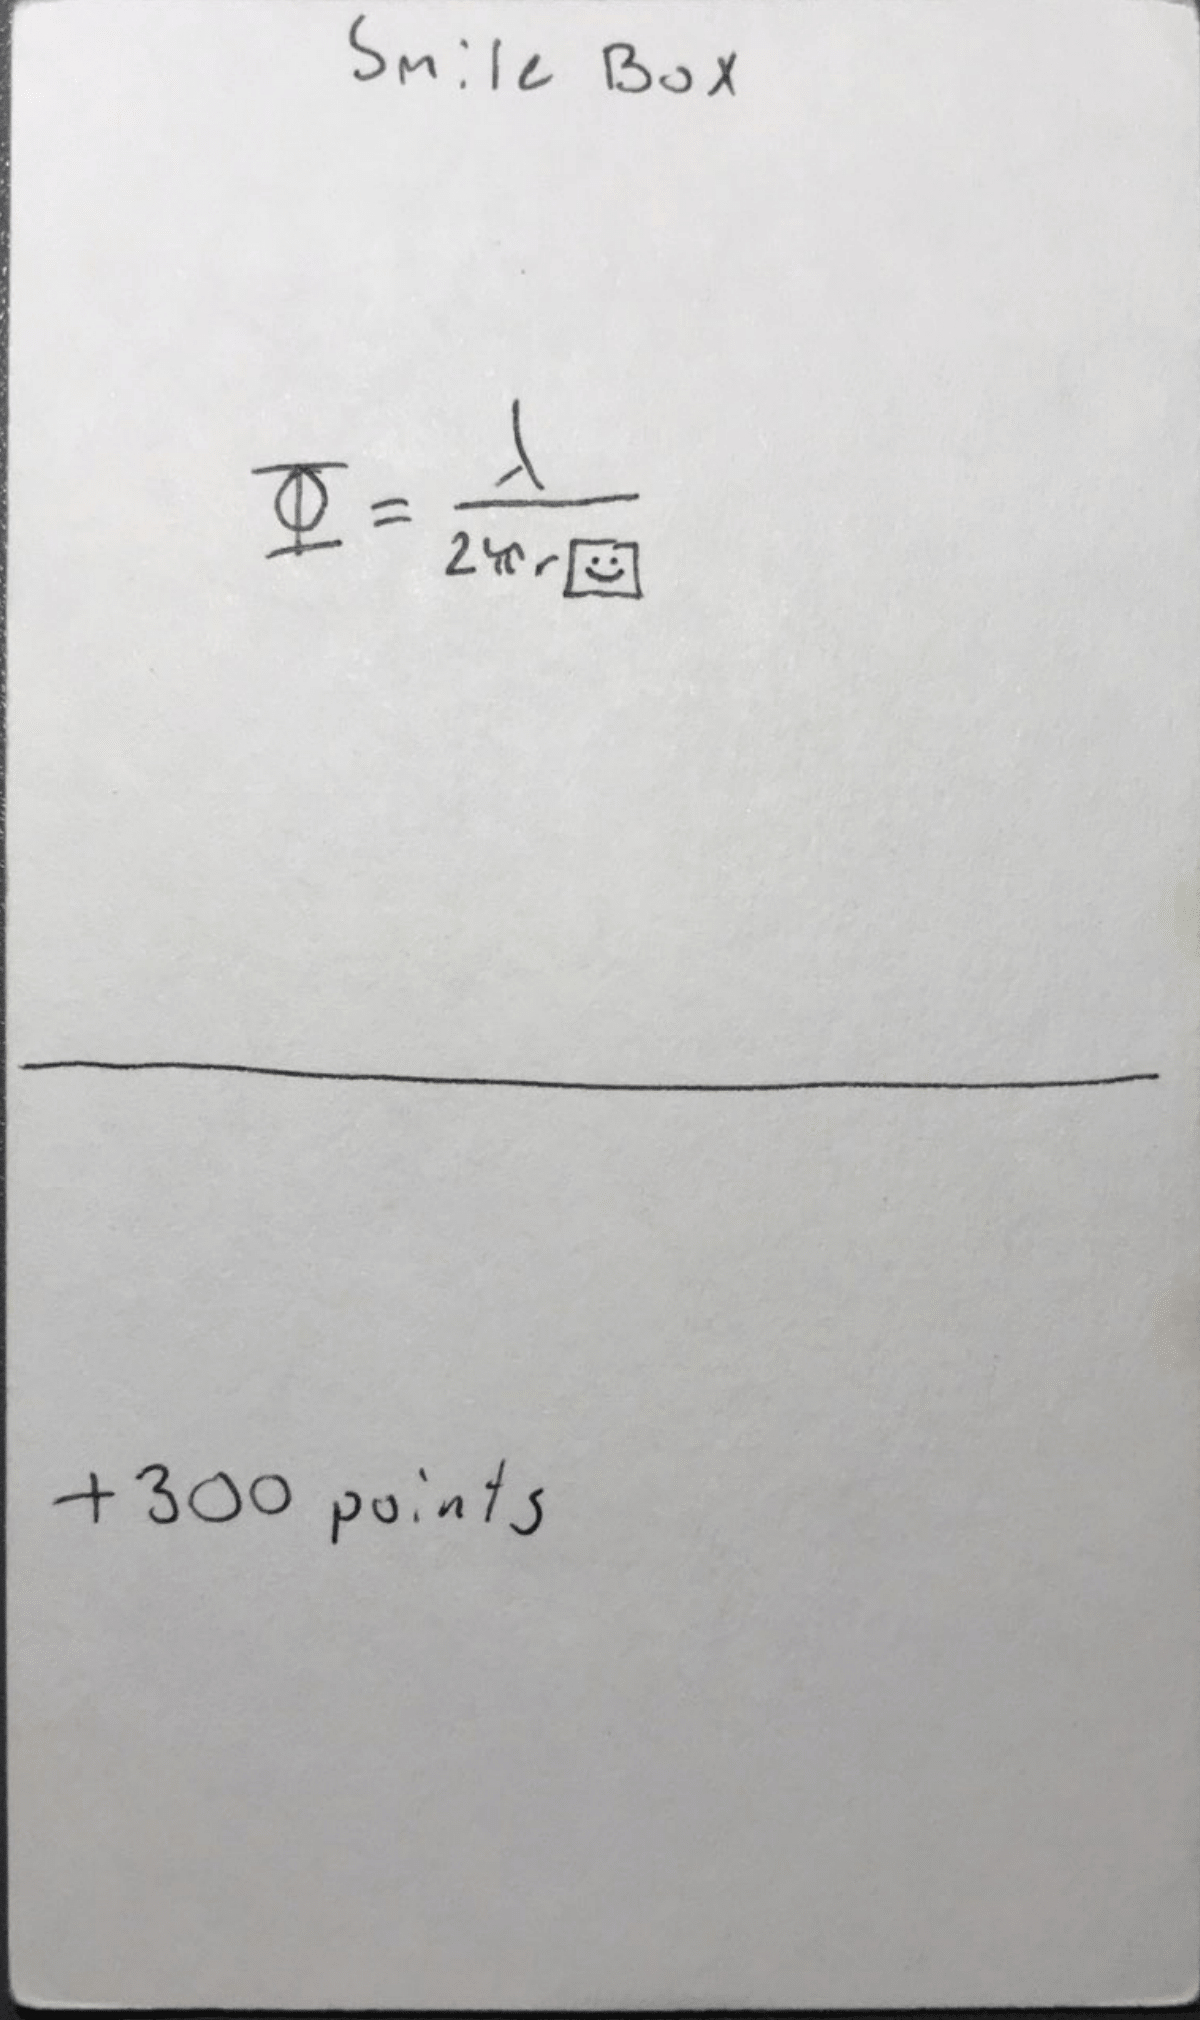 Smile Box
Φ = λ / 2πr☺
+300 points